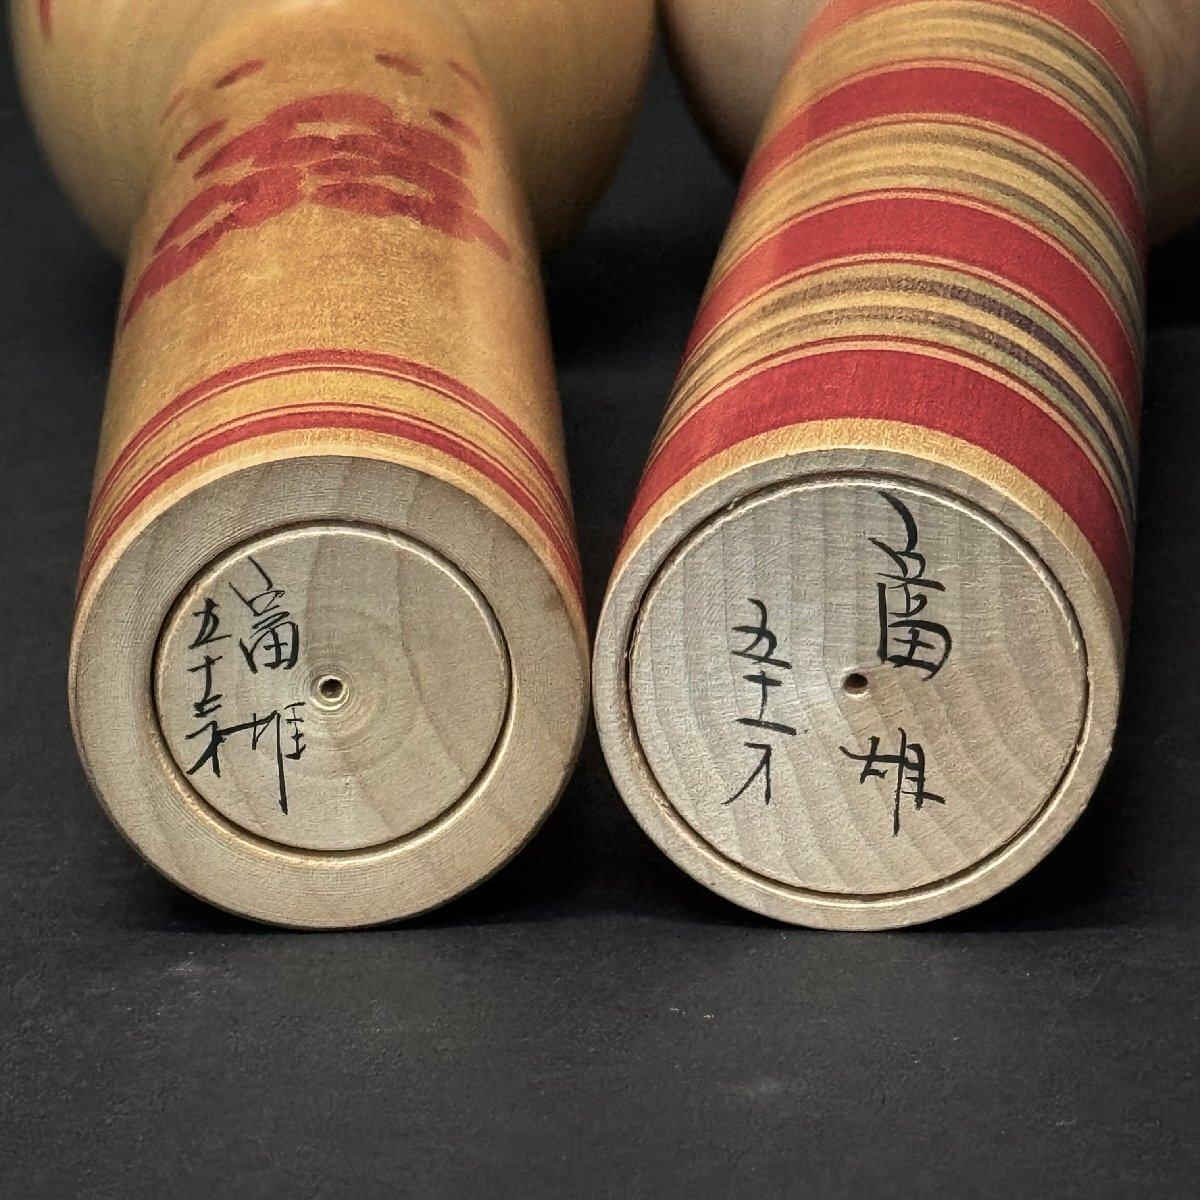 富雄
五十三才
富雄
五十一才